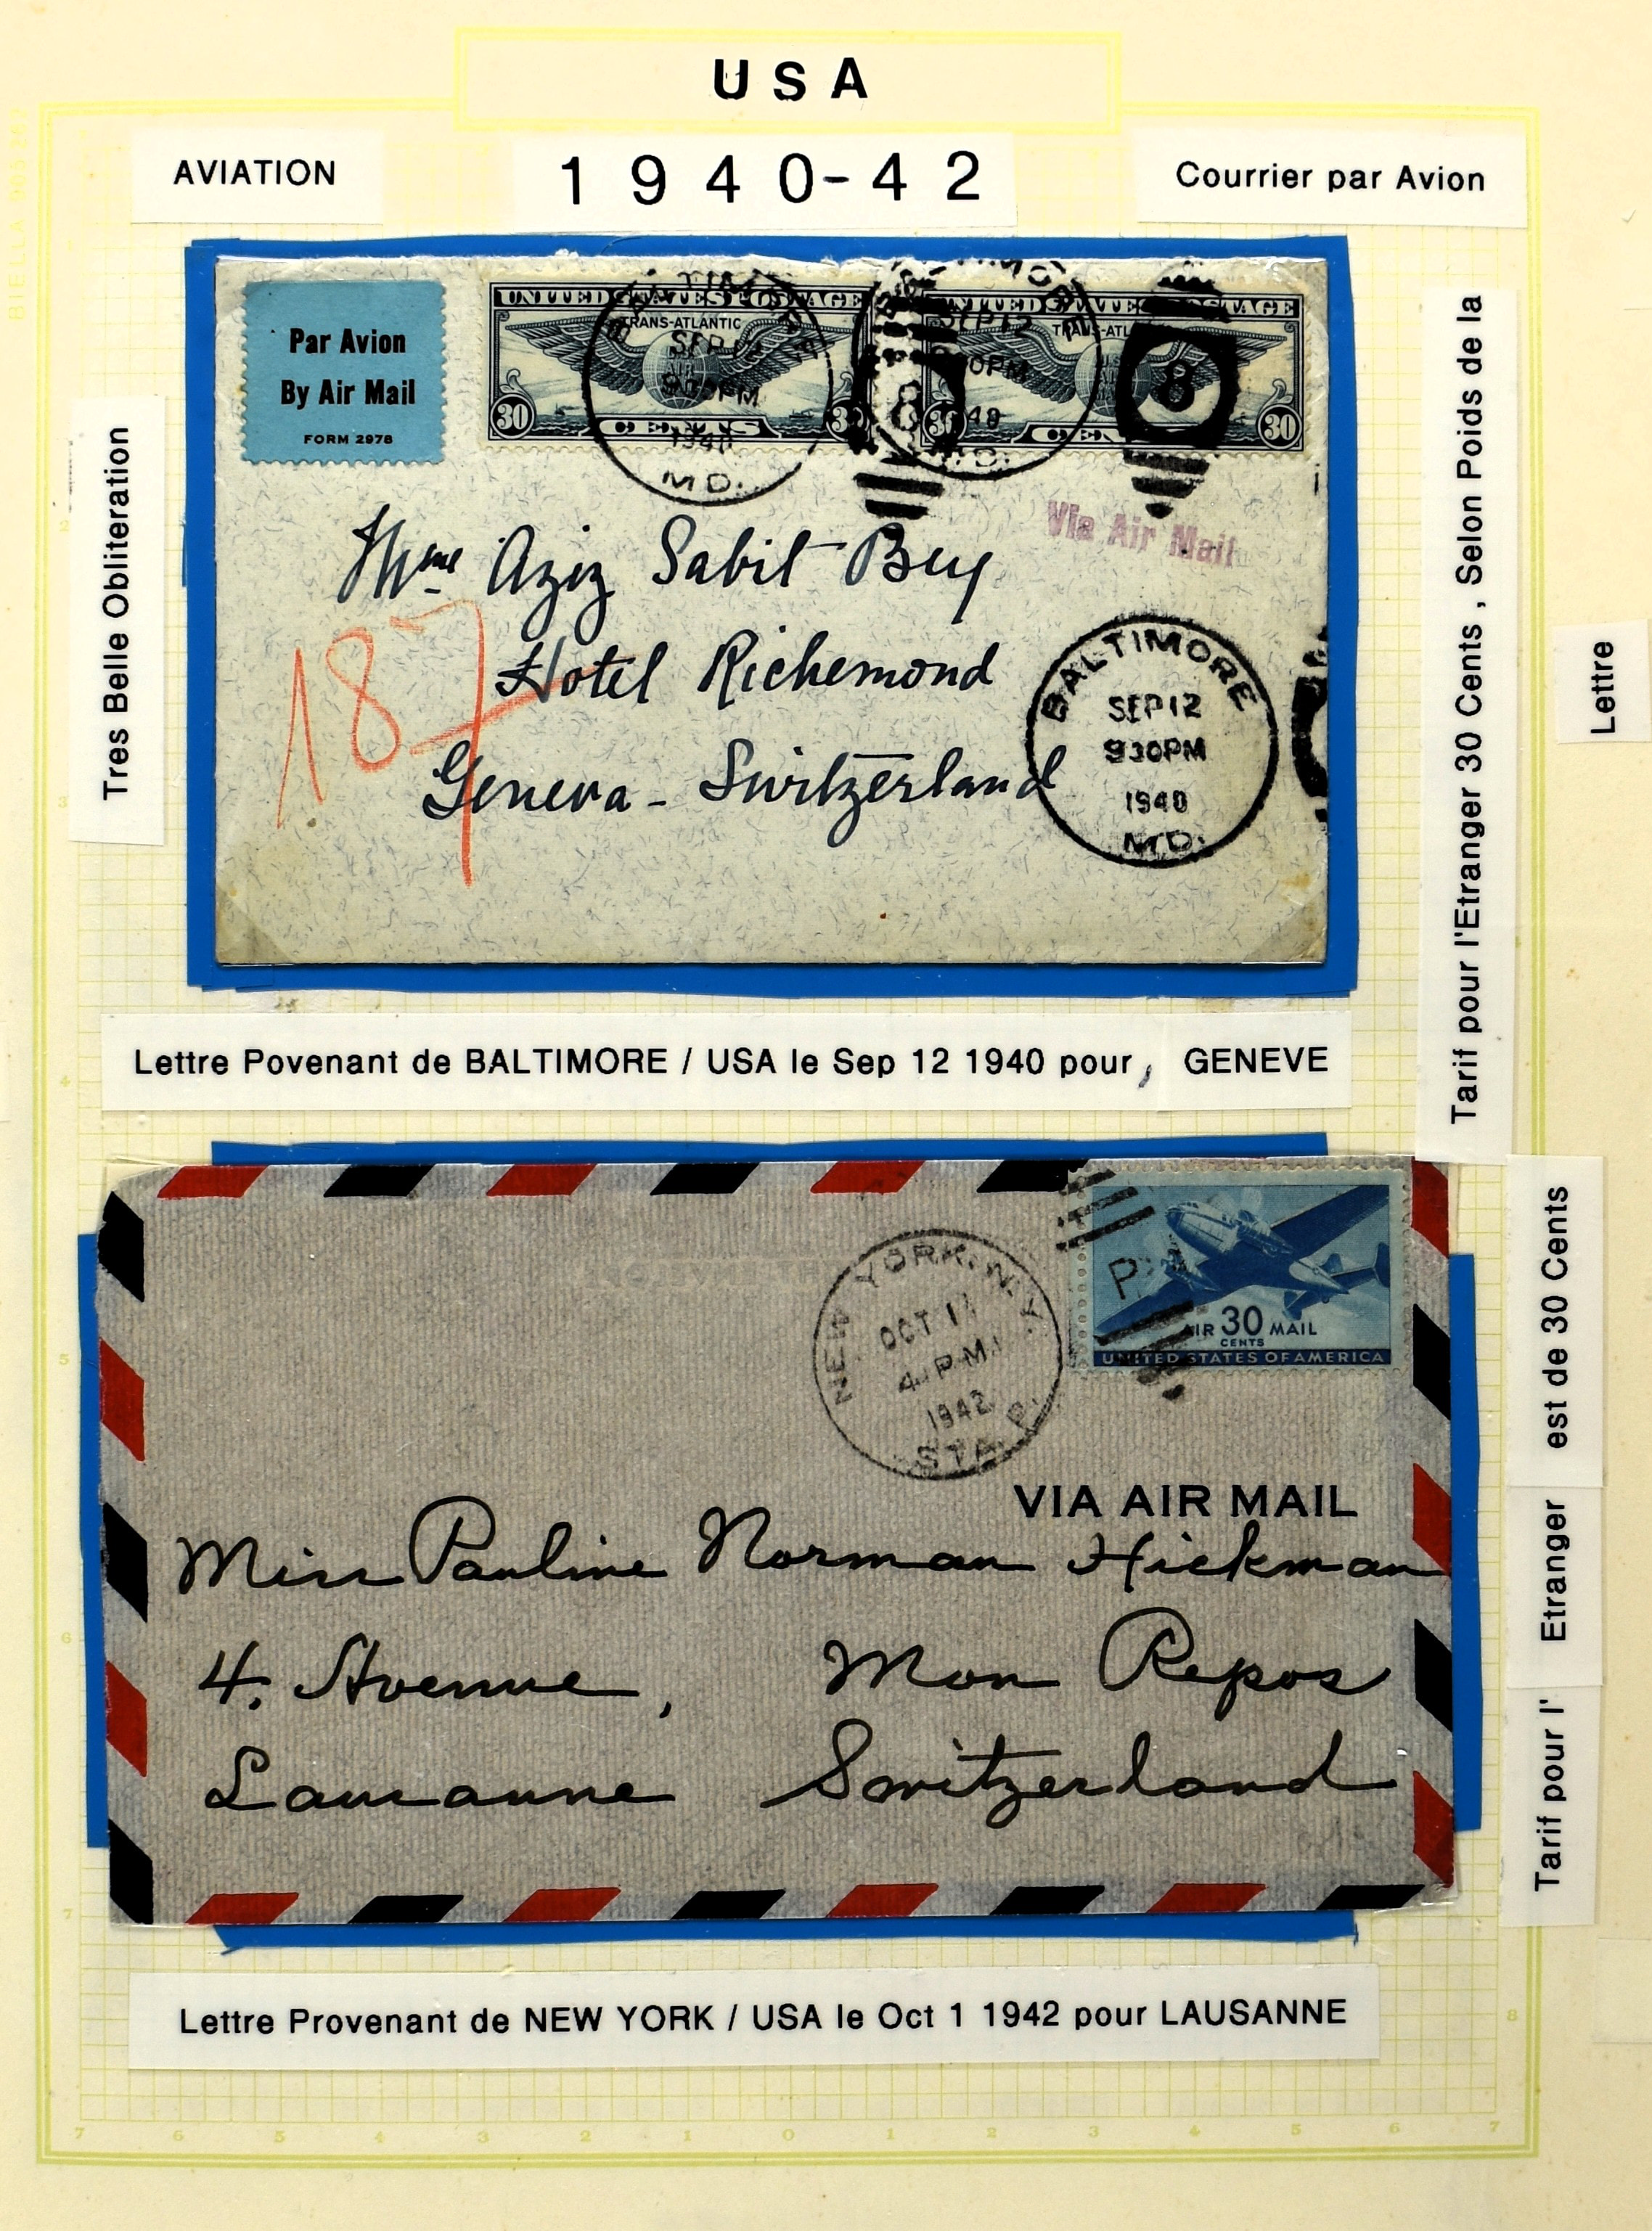 USA
AVIATION
1940-42
Courrier par Avion
Tres Belle Obliteration
Par Avion
By Air Mail
FORM 2978
UNITED STATES POSTAGE
TRANS-ATLANTIC
30
30
CENTS
UNITED STATES POSTAGE
30
30
BALTIMORE
SEP 12
1940
MD.
8
8
Via Air Mail
Mme Aziz Sabit Bey
187
Hotel Richemond
Geneva - Switzerland
BALTIMORE
SEP 12
930PM
1940
MD.
Tarif pour l'Etranger 30 Cents , Selon Poids de la
Lettre
Lettre Povenant de BALTIMORE / USA le Sep 12 1940 pour, GENEVE
NEW YORK, N.Y.
OCT 1
4 PM
1942
STA.
AIR 30 MAIL
CENTS
UNITED STATES OF AMERICA
VIA AIR MAIL
Miss Pauline Norman Hickman
4. Avenue, Mon Repos
Lausanne Switzerland
Tarif pour l' Etranger est de 30 Cents
Lettre Provenant de NEW YORK / USA le Oct 1 1942 pour LAUSANNE
7 6 5 4 3 2 1 0 1 2 3 4 5 6 7